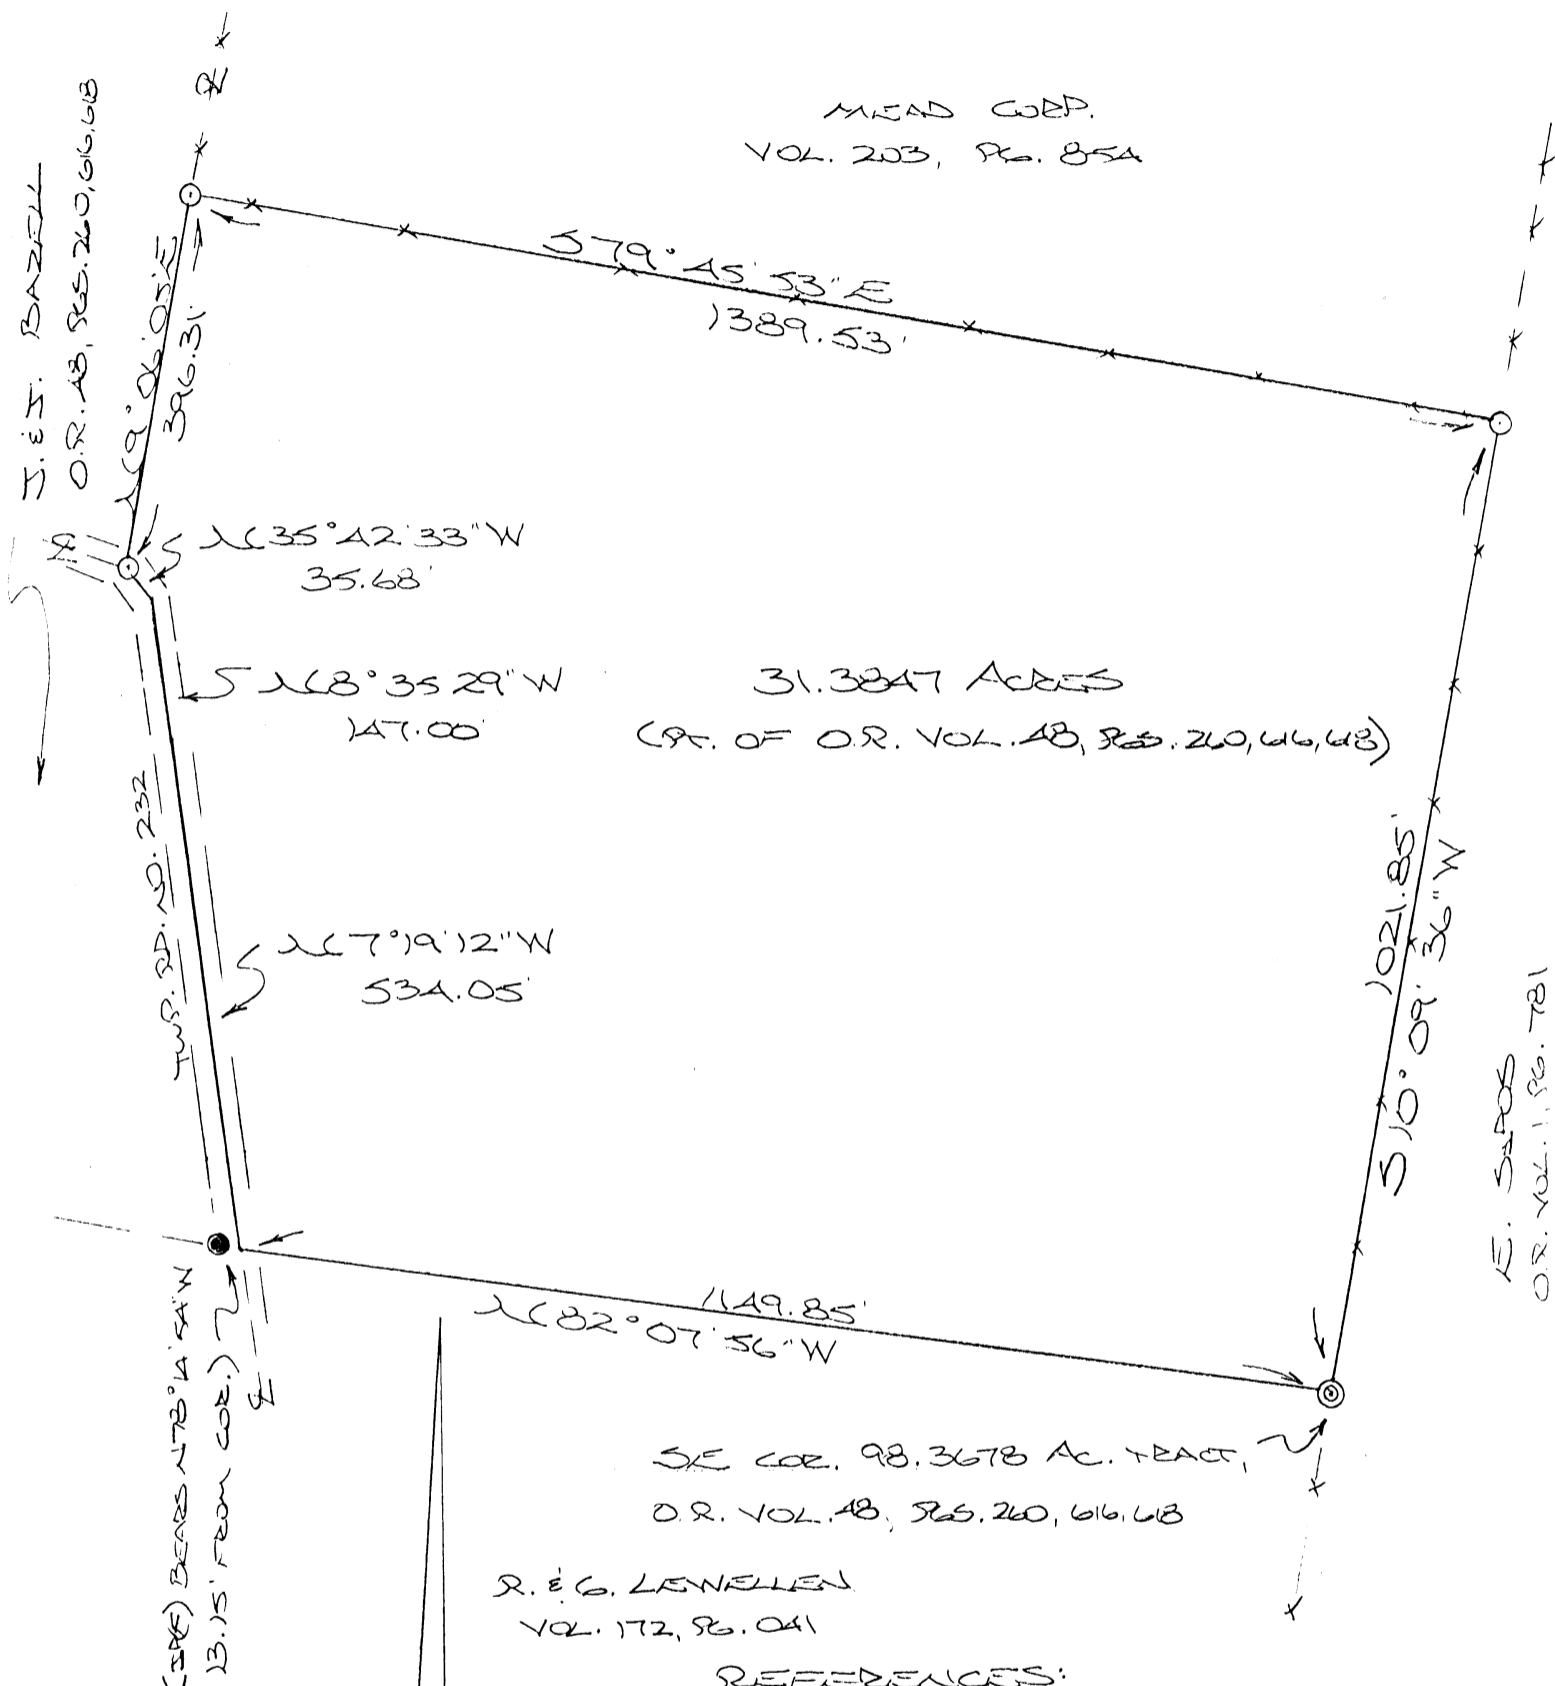 MEAD CORP.
VOL. 203, PG. 854
J. & J. BAZELL
O.R. 48, PGS. 260, 616, 618
N 9° 06' 05" E
396.31'
S 79° 45' 53" E
1389.53'
N 35° 42' 33" W
35.68'
N 8° 35' 29" W
147.00'
31.3847 ACRES
(PT. OF O.R. VOL. 48, PGS. 260, 616, 618)
TWP. RD. NO. 232
N 7° 19' 12" W
534.05'
1021.85'
S 10° 09' 36" W
E. SIPOS
O.R. VOL. 1, PG. 781
1149.85'
N 82° 07' 56" W
(IPF) BEARS N 78° 14' 54" W
13.15' FROM COR.)
SE COR. 98.3678 AC. TRACT,
O.R. VOL. 48, PGS. 260, 616, 618
R. & G. LEWELLEN
VOL. 172, PG. 041
REFERENCES: